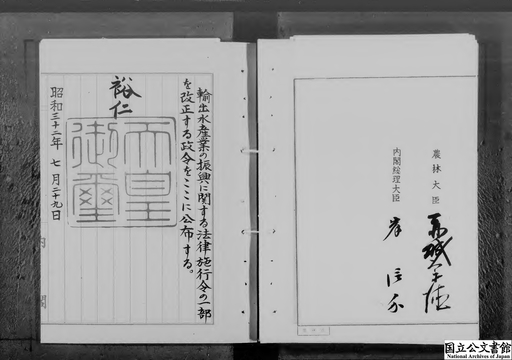 輸出水産業の振興に関する法律施行令の一部
を改正する政令をここに公布する。
裕仁
天皇
御璽
昭和三十二年 七月二十九日
内閣
農林大臣
内閣総理大臣 岸信介
国立公文書館
National Archives of Japan